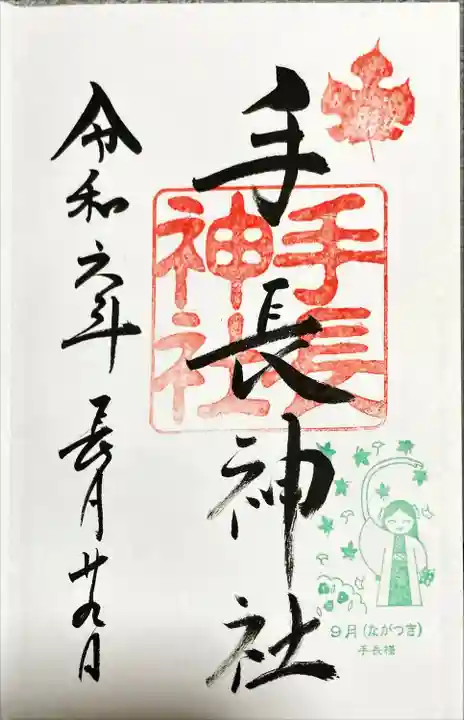 手長神社
手長神社
令和六年 長月廿九日
9月(ながつき)
手長様